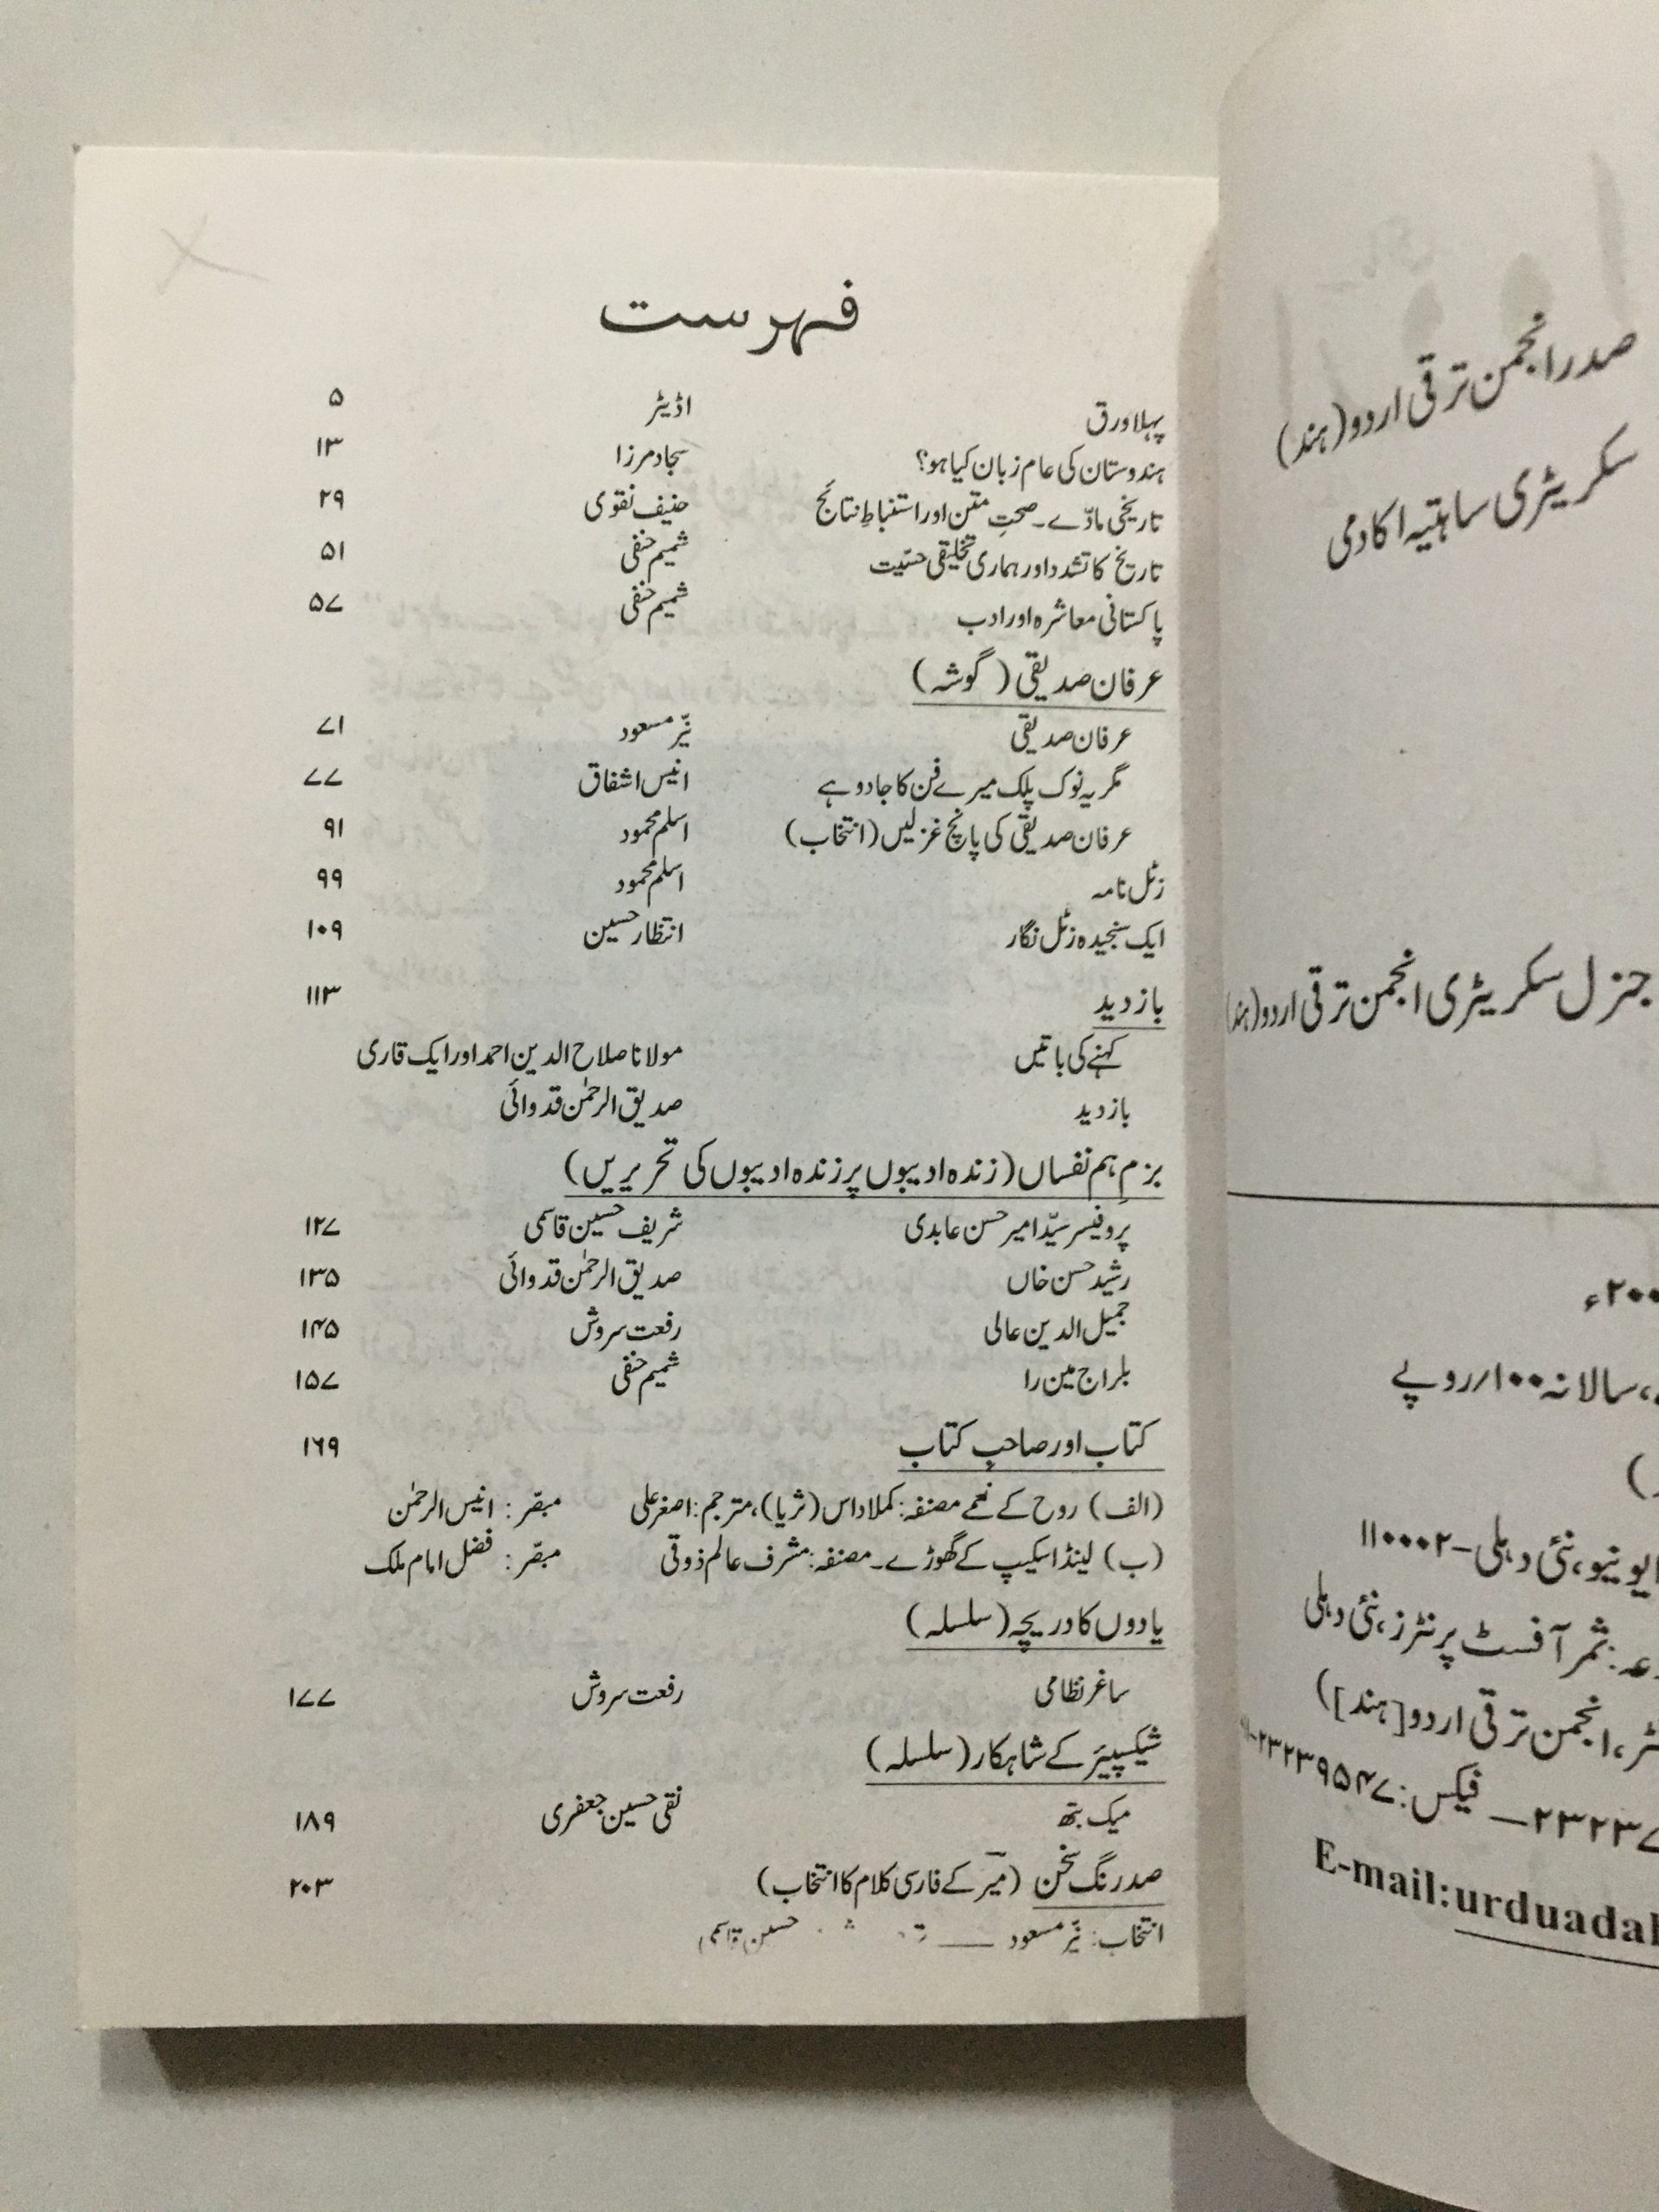 صدر انجمن ترقی اردو (ہند)
سکریٹری ساہتیہ اکادمی
جنرل سکریٹری انجمن ترقی اردو (ہند)
سالانہ ۱۰۰/روپے
ایونیو، نئی دہلی-۱۱۰۰۰۲
ثمر آفسٹ پرنٹرز، نئی دہلی
انجمن ترقی اردو [ہند])
فیکس: ۲۳۲۳۹۵۴۷
E-mail:urduadal
فہرست
پہلا ورق اڈیٹر ۵
ہندوستان کی عام زبان کیا ہو؟ سجاد مرزا ۱۳
تاریخی مادّے۔ صحتِ متن اور استنباطِ نتائج حنیف نقوی ۲۹
تاریخ کا تشدد اور ہماری تخلیقی حسّیت شمیم حنفی ۵۱
پاکستانی معاشرہ اور ادب شمیم حنفی ۵۷
عرفان صدیقی (گوشہ)
عرفان صدیقی نیّر مسعود ۷۱
مگر یہ نوک پلک میرے فن کا جادو ہے انیس اشفاق ۷۷
عرفان صدیقی کی پانچ غزلیں (انتخاب) اسلم محمود ۹۱
زٹل نامہ اسلم محمود ۹۹
ایک سنجیدہ زٹل نگار انتظار حسین ۱۰۹
بازدید ۱۱۳
کہنے کی باتیں مولانا صلاح الدین احمد اور ایک قاری
بازدید صدیق الرحمٰن قدوائی
بزمِ ہم نفساں (زندہ ادیبوں پر زندہ ادیبوں کی تحریریں)
پروفیسر سیّد امیر حسن عابدی شریف حسین قاسمی ۱۲۷
رشید حسن خاں صدیق الرحمٰن قدوائی ۱۳۵
جمیل الدین عالی رفعت سروش ۱۴۵
بلراج مین را شمیم حنفی ۱۵۷
کتاب اور صاحبِ کتاب ۱۶۹
(الف) روح کے نغمے مصنفہ: کملا داس (ثریا)، مترجم: اصغر علی مبصّر: انیس الرحمٰن
(ب) لینڈ اسکیپ کے گھوڑے۔ مصنفہ: مشرف عالم ذوقی مبصّر: فضل امام ملک
یادوں کا دریچہ (سلسلہ)
ساغر نظامی رفعت سروش ۱۷۷
شیکسپیئر کے شاہکار (سلسلہ)
میک بتھ نقی حسین جعفری ۱۸۹
صد رنگ سخن (میرؔ کے فارسی کلام کا انتخاب) ۲۰۳
انتخاب: نیّر مسعود — حسین قاسمی